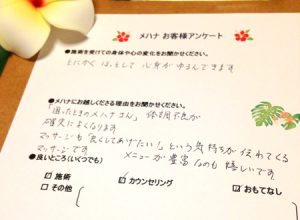 メハナ お客様アンケート
●施術を受けての身体や心の変化をお聞かせください。
とにかく ほっとして 心身がゆるんできます
●メハナにお越しくださる理由をお聞かせください。
「困ったときのメハナさん」 体調不良が
確実によくなります
マッサージも「良くしてあげたい！」という気持ちが伝わてくる
マッサージです メニューが豊富なのも嬉しいです。
●良いところ（いくつでも）
☑施術 ☑カウンセリング ☑おもてなし
□その他 (